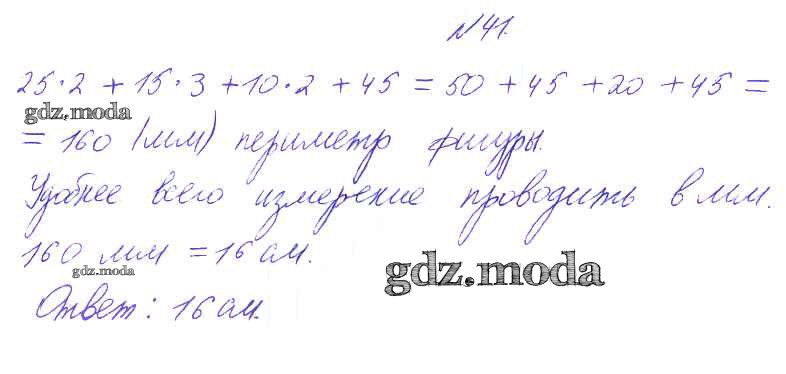 №41.
25·2 + 15·3 + 10·2 + 45 = 50 + 45 + 20 + 45 =
gdz.moda
= 160 (мм) периметр фигуры.
Удобнее всего измерение проводить в мм.
160 мм = 16 см.
gdz.moda
gdz.moda
Ответ: 16 см.